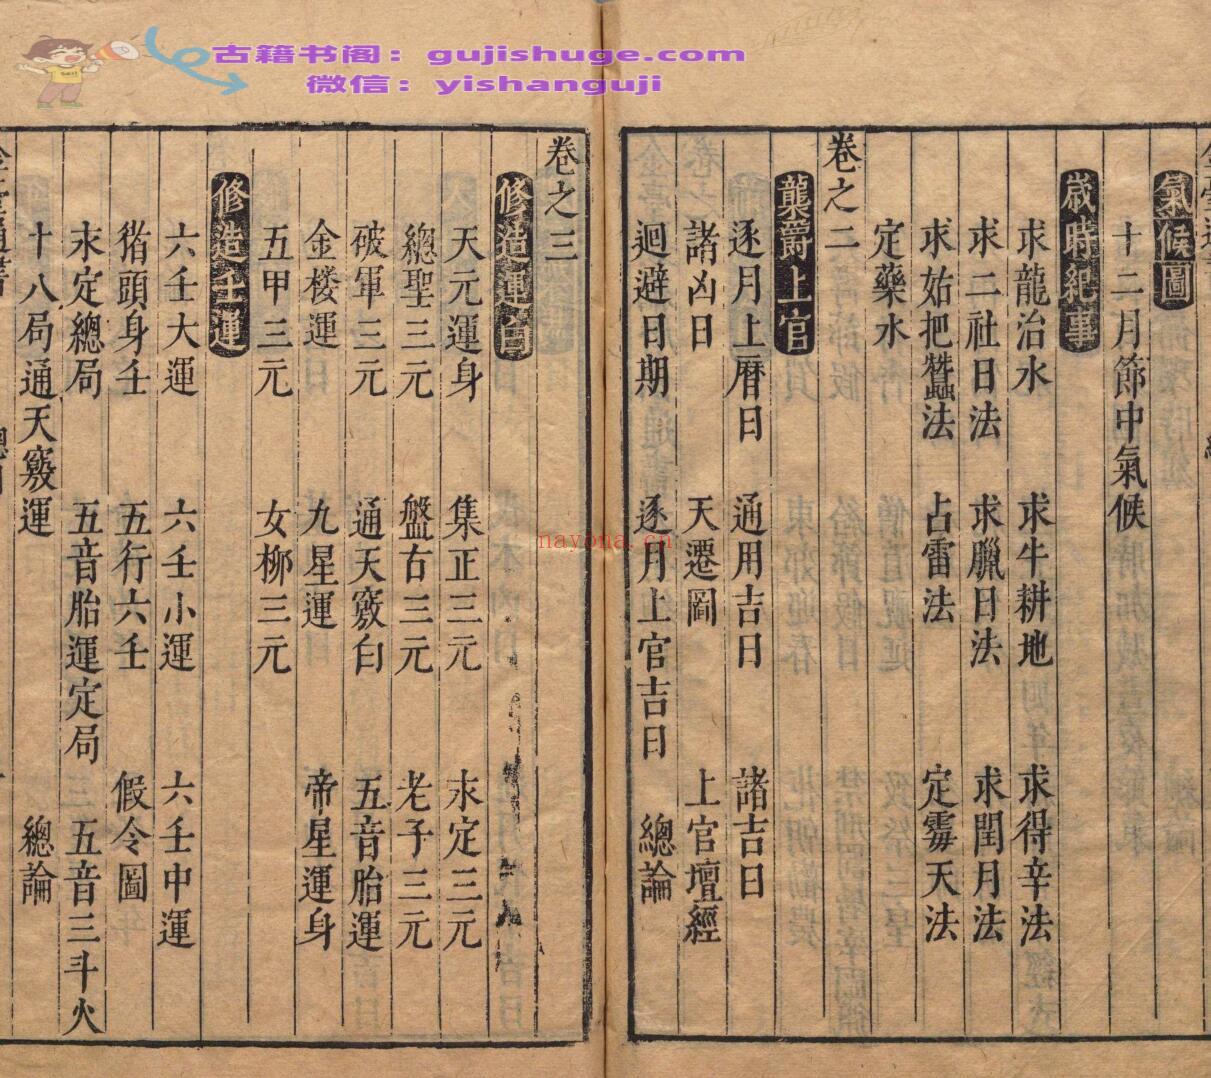 古籍书阁：gujishuge.com
微信：yishanguji
nayona.cn
氣候圖
十二月節中氣候
歲時紀事
求龍治水 求牛耕地 求得辛法
求二社日法 求臘日法 求閏月法
求姑把蠶法 占雷法 定霉天法
定藥水
卷之二
襲爵上官
逐月上曆日 通用吉日 諸吉日
諸凶日 天遷圖 上官壇經
迴避日期 逐月上官吉日 總論
卷之三
修造運白
天元運身 集正三元 求定三元
總聖三元 盤古三元 老子三元
破軍三元 通天竅白 五音胎運
金楼運 九星運 帝星運身
五甲三元 女柳三元
修造壬運
六壬大運 六壬小運 六壬中運
揩頭身壬 五行六壬 假令圖
求定總局 五音胎運定局 五音三斗火
十八局通天竅運 總論